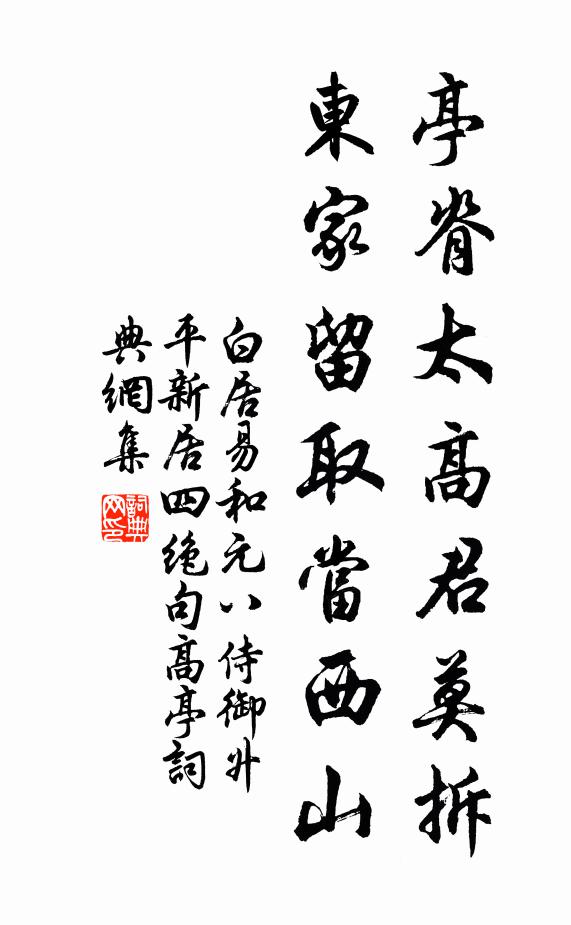 亭脊太高君莫拆
東家留取當西山
白居易和元八侍御升
平新居四絶句高亭詞
典網集
詞典网印